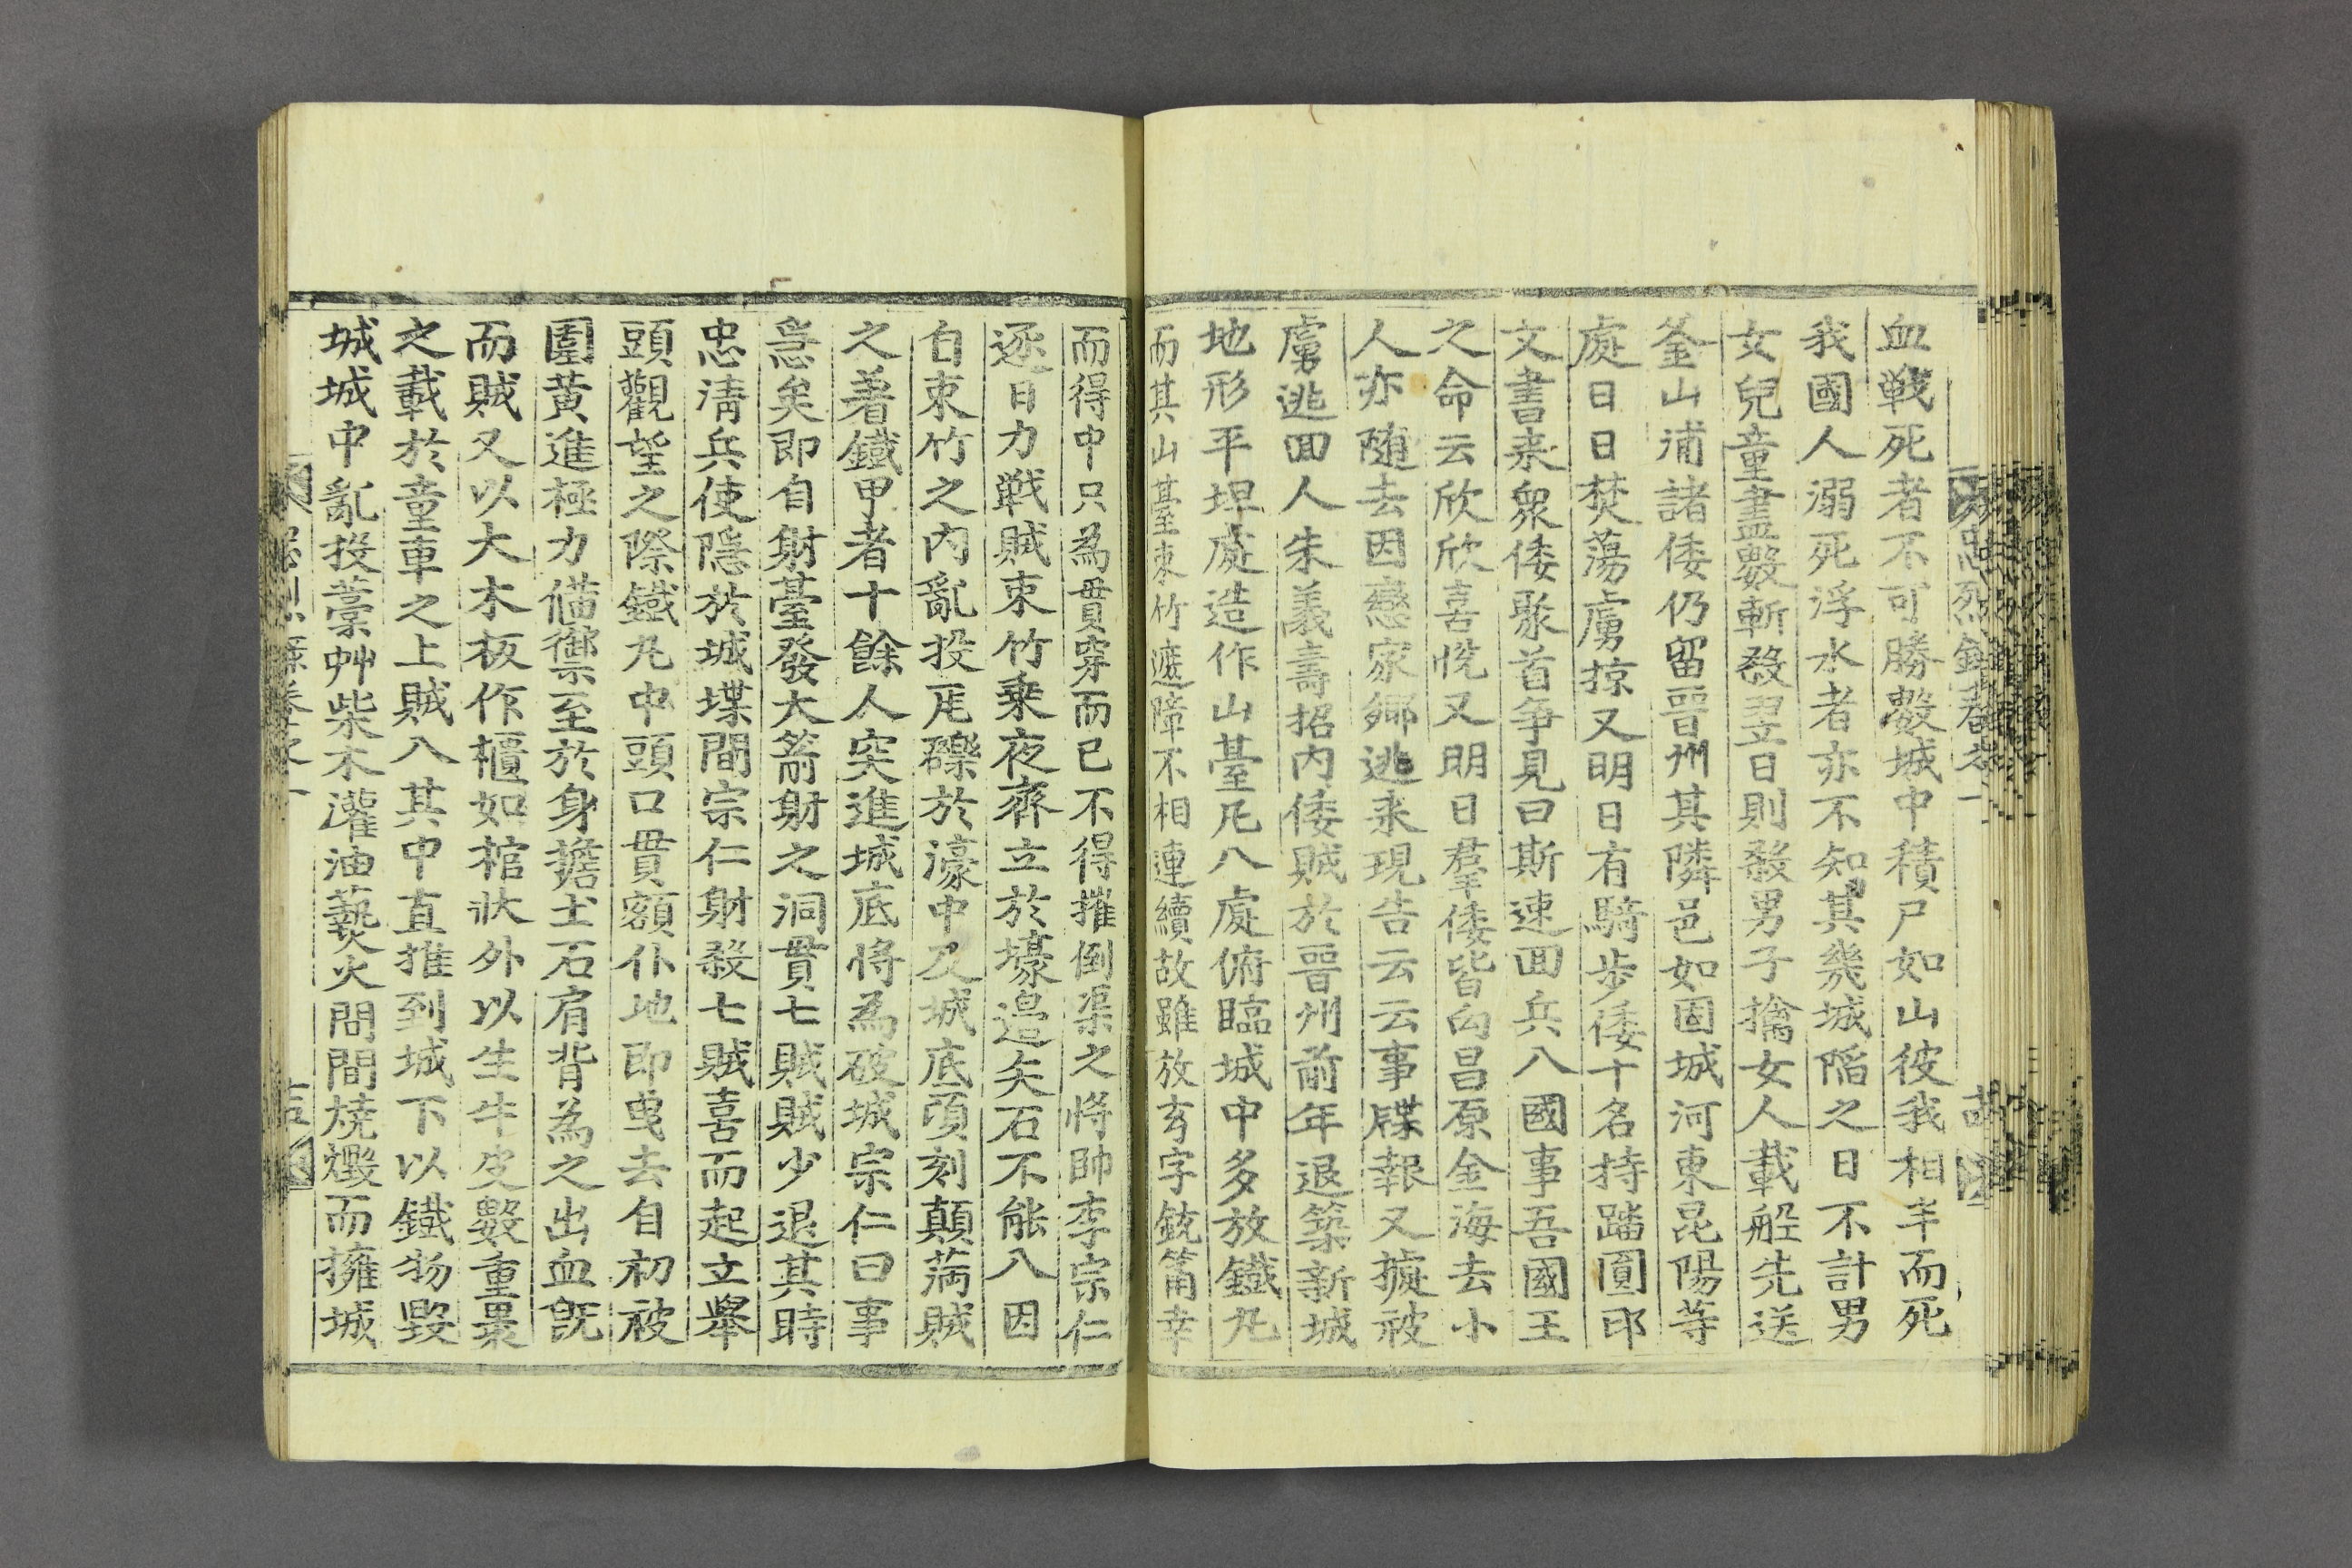 血戰死者不可勝數城中積尸如山彼我相半而死
我國人溺死浮水者亦不知其幾城陷之日不計男
女兒童盡數斬殺翌日則殺男子擒女人載舡先送
釜山浦諸倭仍留晋州其隣邑如固城河東昆陽等
處日日焚蕩虜掠又明日有騎步倭十名持踏圓印
文書来衆倭聚首争見曰斯速囬兵入國事吾國王
之命云欣欣喜悅又明日羣倭皆向昌原金海去小
人亦随去因戀家鄉逃来現告云云事牒報又據被
虜逃囬人朱義壽招内倭賊於晋州前年退築新城
地形平垾處造作山臺凡八處俯臨城中多放鐵丸
而其山臺束竹遮障不相連續故雖放玄字銃筩幸
而得中只為貫穿而已不得摧倒渠之將帥李宗仁
逐日力戰賊束竹乗夜齊立於壕邉矢石不能入因
自束竹之内亂投瓦礫於濠中及城底頃刻顛滿賊
之着鐵甲者十餘人突進城底將為破城宗仁曰事
急矣即自射臺發大箭射之洞貫七賊賊少退其時
忠淸兵使隠於城堞間宗仁射殺七賊喜而起立擧
頭觀望之際鐵丸中頭口貫額仆地即曳去自初被
圍黄進極力備禦至於身擔土石肩背為之出血旣
而賊又以大木板作櫃如棺狀外以生牛皮數重裹
之載於童車之上賊入其中直推到城下以鐵物毀
城城中亂投藁艸柴木灌油爇火間間燒燬而擁城
忠烈錄卷之一